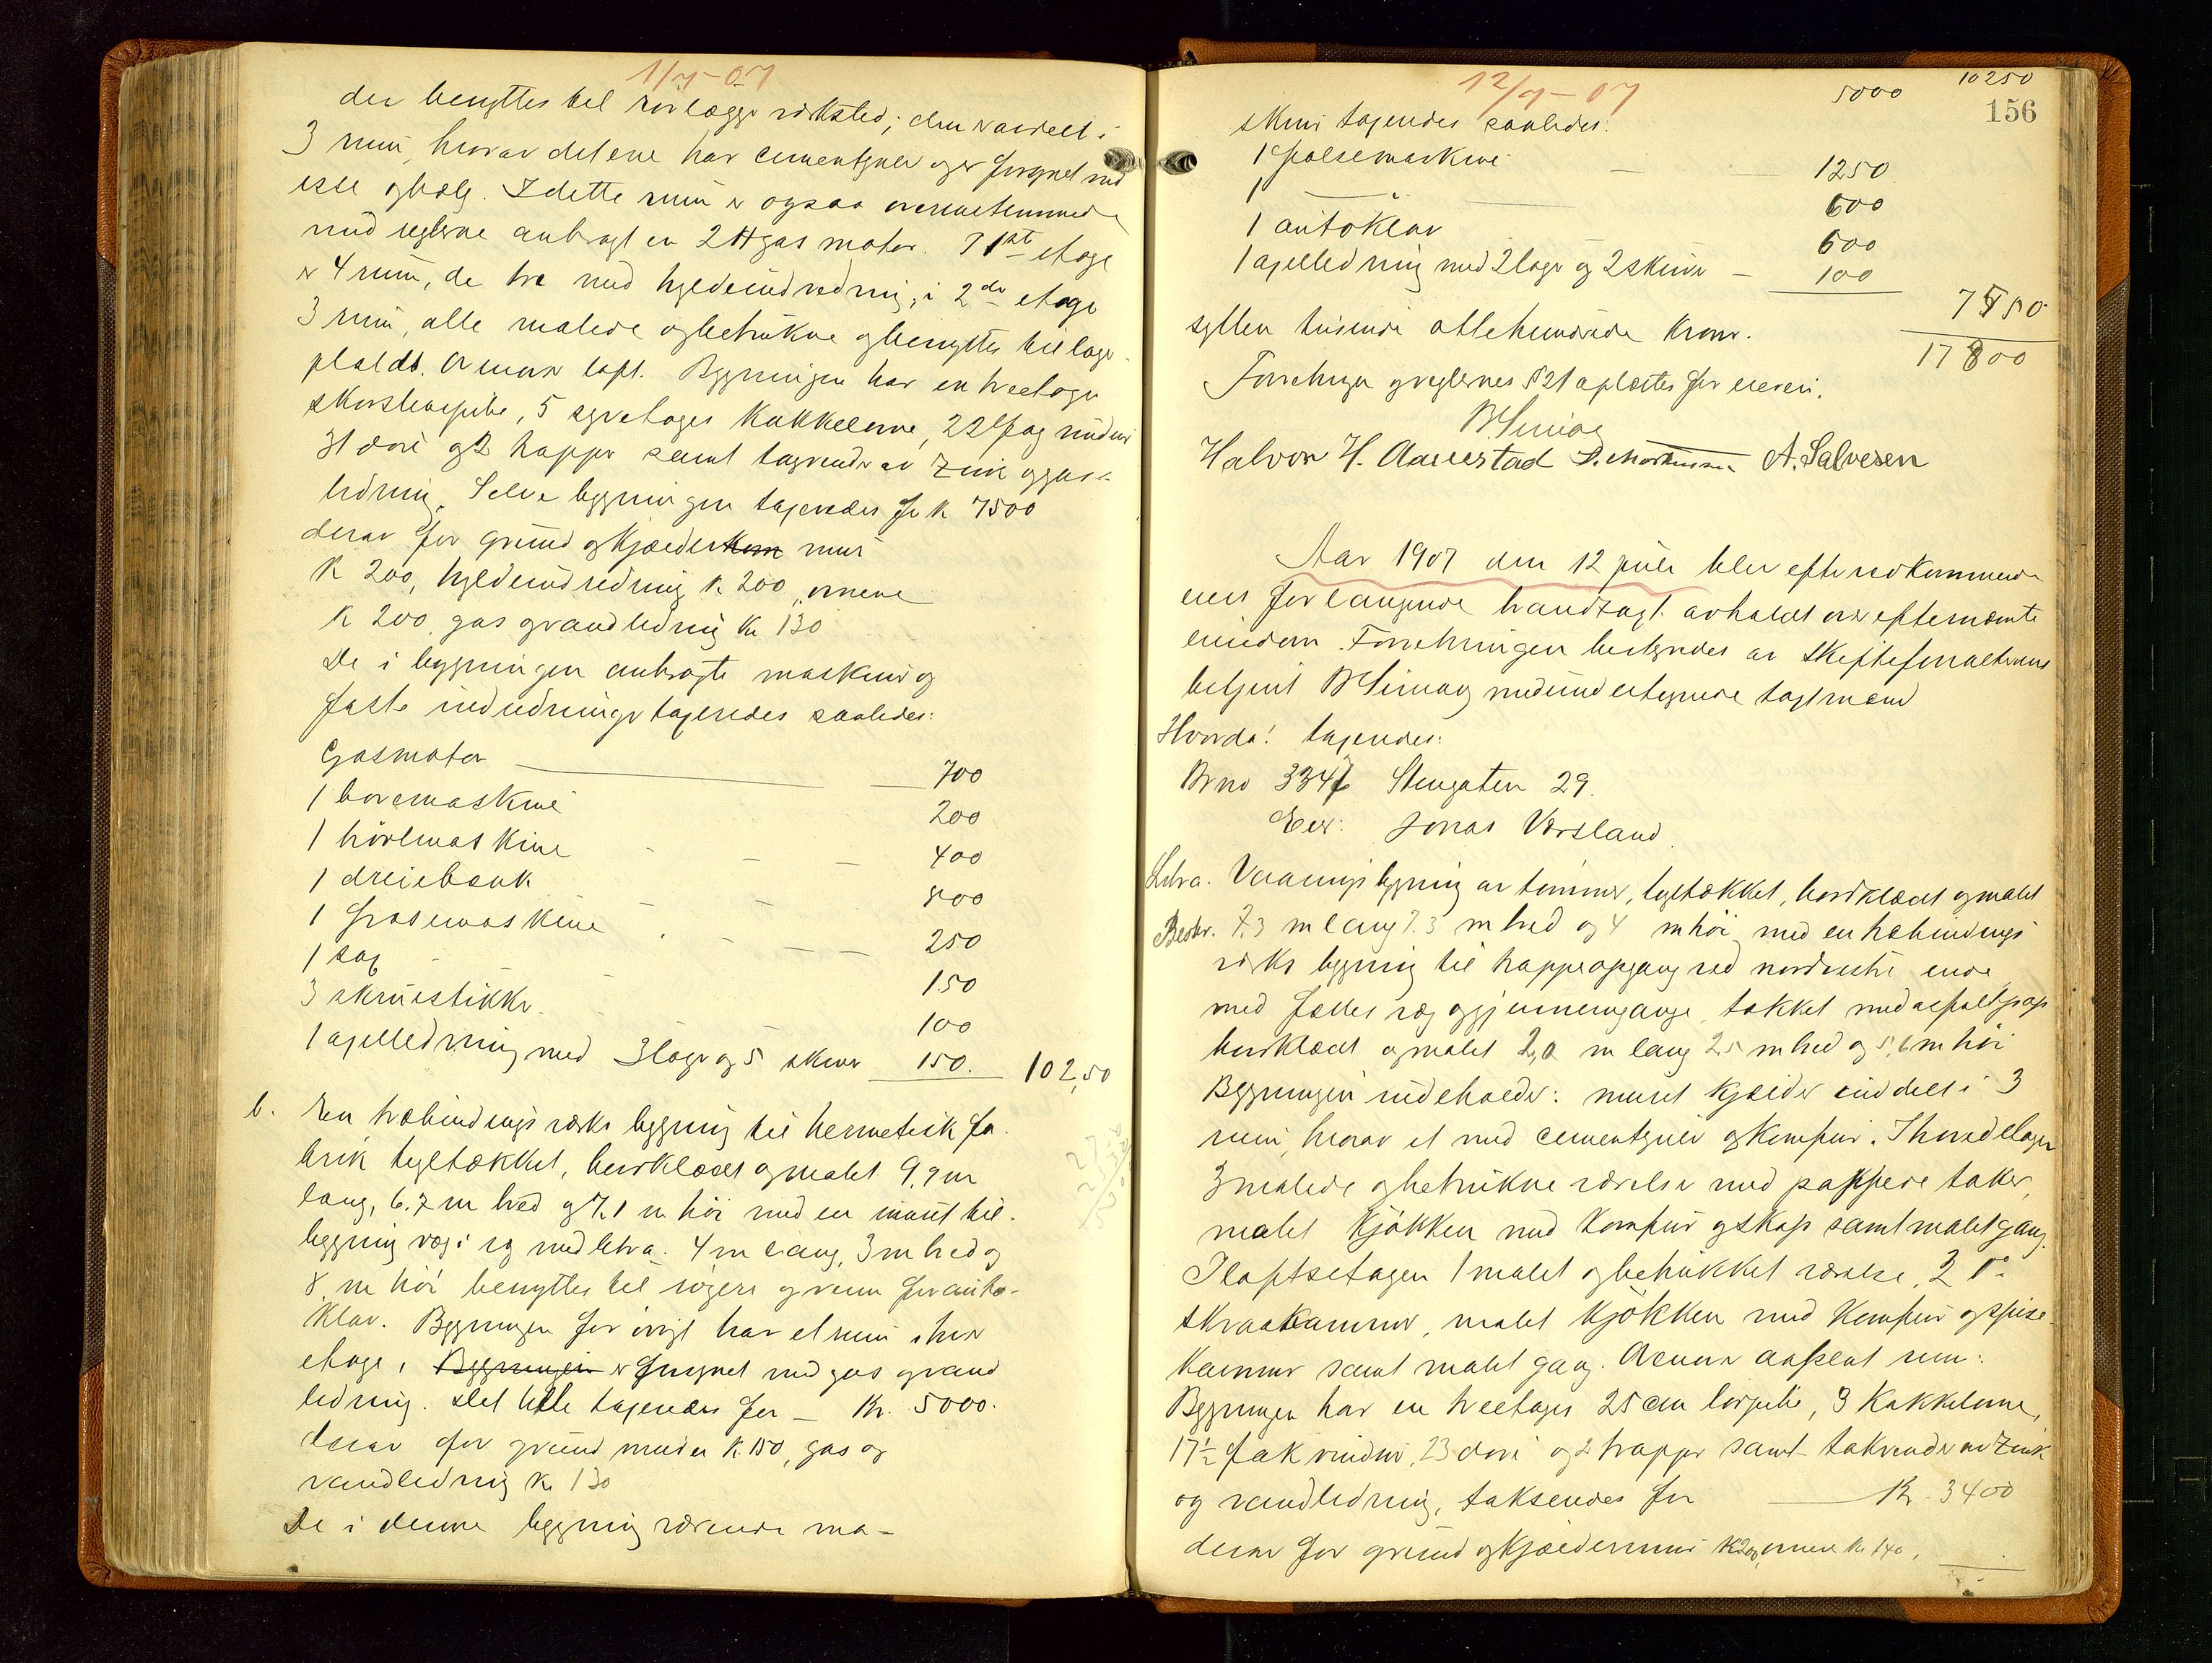 1/7-07
der benyttes til rørlægger verksted; den er avdelt i
3 rum, hvorav det ene har cementgulv og er forsynet med
esse og bælg. I dette rum er ogsaa overensstemmende
med reglerne anbragt en 2 H gas motor. I 1ste etage
er 4 rum, de tre med hyldeindredning, i 2den etage
3 rum, alle malede og betrukne og benyttes til lager-
plads. Ovenover loft. Bygningen har en treetages
skorstenspibe, 5 syvetages kakkelovne, 22 fag vinduer
31 døre og 2 trapper samt tagrender av zink og gas-
ledning. Selve bygningen taxeredes for kr 7500
derav for grund og kjælder mur
kr 200, hyldeindredning kr 200, ovnene
kr 200, gas og vandledning kr 130
De i bygningen anbragte maskiner og
faste indredninger taxeredes saaledes:
Gasmotor 700
1 boremaskine 200
1 høvlmaskine 400
1 dreiebænk 800
1 fræsemaskine 250
1 sag 150
3 skruestikker 100
1 axelledning med 3 lager og 5 skiver 150. 102,50
b. En træbindingsverks bygning til hermetik fa-
brik tegltækket, bordklædt og malet 9,9 m
lang, 6.7 m bred og 7.1 m høi med en muret til-
bygning væg i væg med litra a. 4 m lang, 3 m bred og
8 m høi benyttes til røgeri og rum for auto-
klav. Bygningen for øvrigt har et rum i hver
etage, Bygningen er forsynet med gas og vand
ledning. Det hele taxeredes for — Kr. 5000.
derav for grund muren kr. 150, gas og
vandledning kr 130
De i denne bygning værende ma-
12/7-07
5000 10250
156
skiner taxeredes saaledes:
1 falsemaskine — 1250
1 — — 600
1 autoklav 600
1 axelledning med 2 lager og 2 skiver — 100
7550
sytten tusinde ottehundrede kroner. 17800
Forretningen og reglernes § 21 oplæstes for eieren.
Halvor H. Aanestad A. Salvesen
Aar 1907 den 12 juli blev efter vedkommende
eiers forlangende brandtaxt avholdt over efternævnte
eiendom. Forretningen bestyredes av skifteforvalterens
betjent med undertegnede taxtmænd
Hvorda! taxeredes:
Br no 3347 Stengaten 29.
Eier: Jonas Versland.
Litr a. Vaaningsbygning av tømmer, tegltækket, bordklædt og malet
Beskr. 7.3 m lang 7.3 m bred og 4 m høi med en træbindings
verks bygning til trappeopgang ved nordvestre ende
med fælles væg og gjennemgange, tækket med asfaltpap
bordklædt og malet 2,0 m lang 2.5 m bred og 5,6 m høi
Bygningen indeholder: muret kjælder inddelt i 3
rum, hvorav et med cementgulv og komfur. I hovedetagen
3 malede og betrukne værelser med pappede taker,
malet kjøkken med komfur og skap samt malet gang.
I loftsetagen 1 malet og betrukket værelse, 2 do
skraakammer, malet kjøkken med komfur og spise-
kammer samt malet gang. Ovenover avpløiet rum.
Bygningen har en treetages 25 cm lospibe, 3 kakkelovne,
17½ fak vinduer, 23 døre og 2 trapper samt takrender av zink
og vandledning, takseredes for — Kr. 3400
derav for grund og kjældermur kr 200, ovnene kr 140,